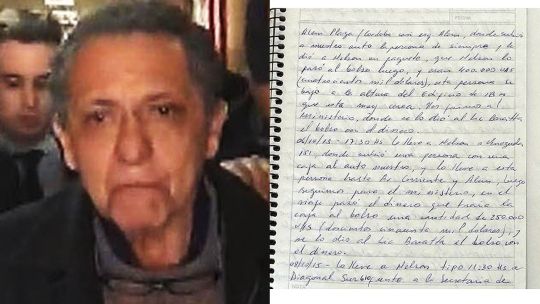 FECHA
Alem Plaza (Cordoba casi esq Alem, donde subio
a nuestro auto la persona de siempre y le
dio a Nelson un paquete, que Nelson lo
pasó al bolso luego, y eran 400.000 U$S
(cuatrocientos mil dolares), esta persona se
bajo a la altura del Edificio de IBM
que esta muy cerca. Nos fuimos al
ministerio, donde se lo dio al Lic Baratta
el bolso con el dinero.
06/10/15 - 17:30 Hs lo lleve a Nelson a
181, donde subió una persona con una
caja al auto nuestro, y lo lleve a esta
persona hasta Av Corriente y Alem, luego
seguimos para el ministerio, en el
viaje pasó el dinero que traia la
caja al bolso una cantidad de 250.000
U$S (doscientos cincuenta mil dolares), y
se lo dio al Lic Baratta el bolso con
el dinero.
08/10/15 - lo lleve a Nelson tipo 11:30 Hs a
Diagonal Sur a la secretaria de